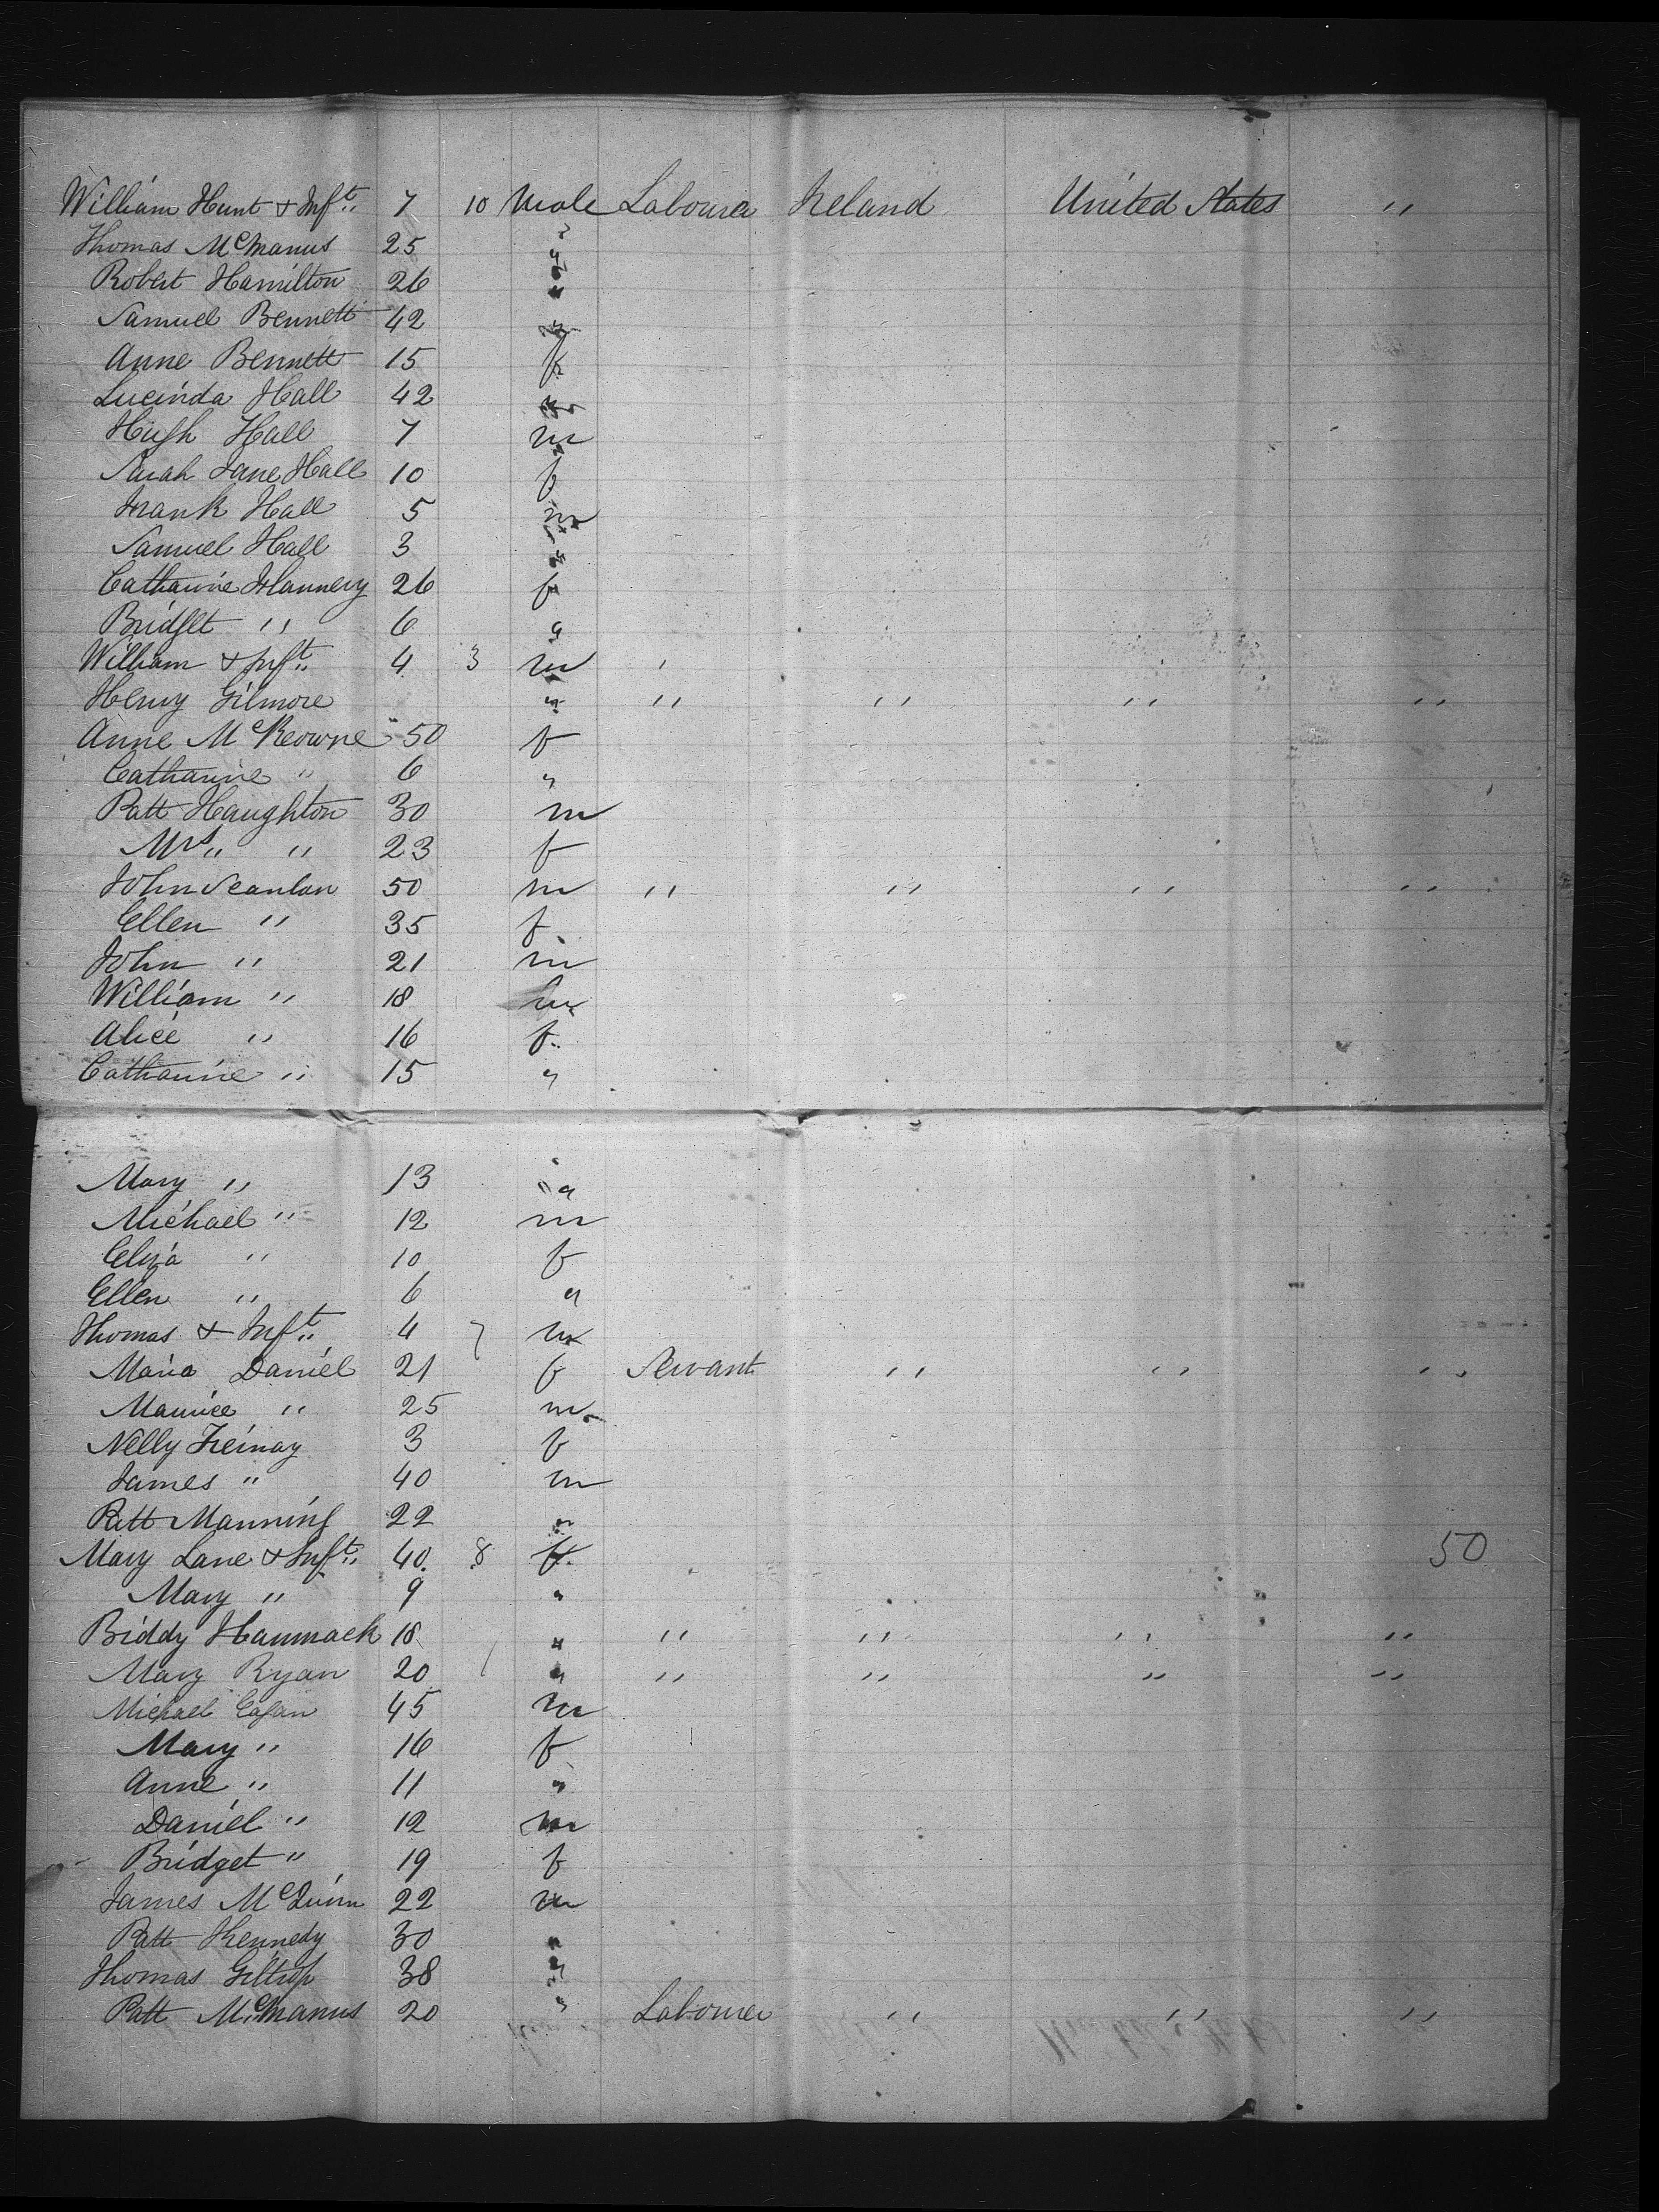 William Hunt & Inft. 7 10 Male Labourer Ireland United States "
Thomas McManus 25 "
Robert Hamilton 26 "
Samuel Bennett 42 "
Anne Bennett 15 f
Lucinda Hall 42 "
Hugh Hall 7 m
Sarah Jane Hall 10 f
Frank Hall 5 m
Samuel Hall 3 "
Catharine Flannery 26 f
Bridget " 6 "
William & Inft. 4 3 m
Henry Gilmore " " " " "
Anne McKeowne 50 f
Catharine " 6 "
Patt Haughton 30 m
Mrs " 23 f
John Scanlan 50 m " " " "
Ellen " 35 f
John " 21 m
William " 18 m
Alice " 16 f
Catharine " 15 "
Mary " 13 "
Michael " 12 m
Eliza " 10 f
Ellen " 6 "
Thomas & Inft. 4 7 m
Maria Daniel 21 f Servant " " "
Maurice " 25 m
Nelly 3 f
James " 40 m
Patt Manning 22 "
Mary Lane & Inft. 40 8 f 50
Mary " 9 "
Biddy Hammack 18 " " " " "
Mary Ryan 20 " " " " "
Michael 45 m
Mary " 16 f
Anne " 11 "
Daniel " 12 m
Bridget " 19 f
James McQuinn 22 m
Patt Kennedy 30 "
Thomas Giltrap 38 "
Patt McManus 20 " Labourer " " "